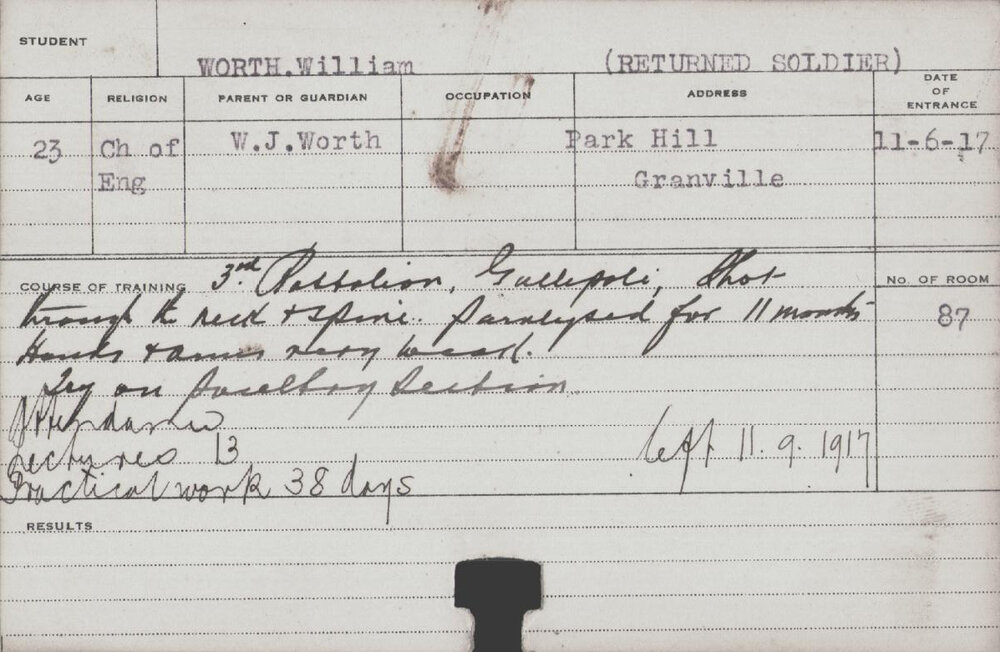 STUDENT
WORTH.William (RETURNED SOLDIER)
AGE RELIGION PARENT OR GUARDIAN OCCUPATION ADDRESS DATE OF ENTRANCE
23 Ch of W.J.Worth Park Hill 11-6-17
Eng Granville
COURSE OF TRAINING 3rd. Battalion, Gallipoli, Shot No. OF ROOM
through the neck & spine. Paralysed for 11 months 87
Hands & arms very weak.
Try on Poultry Section
Attendance
Lectures 13 Left 11.9.1917
Practical work 38 days
RESULTS